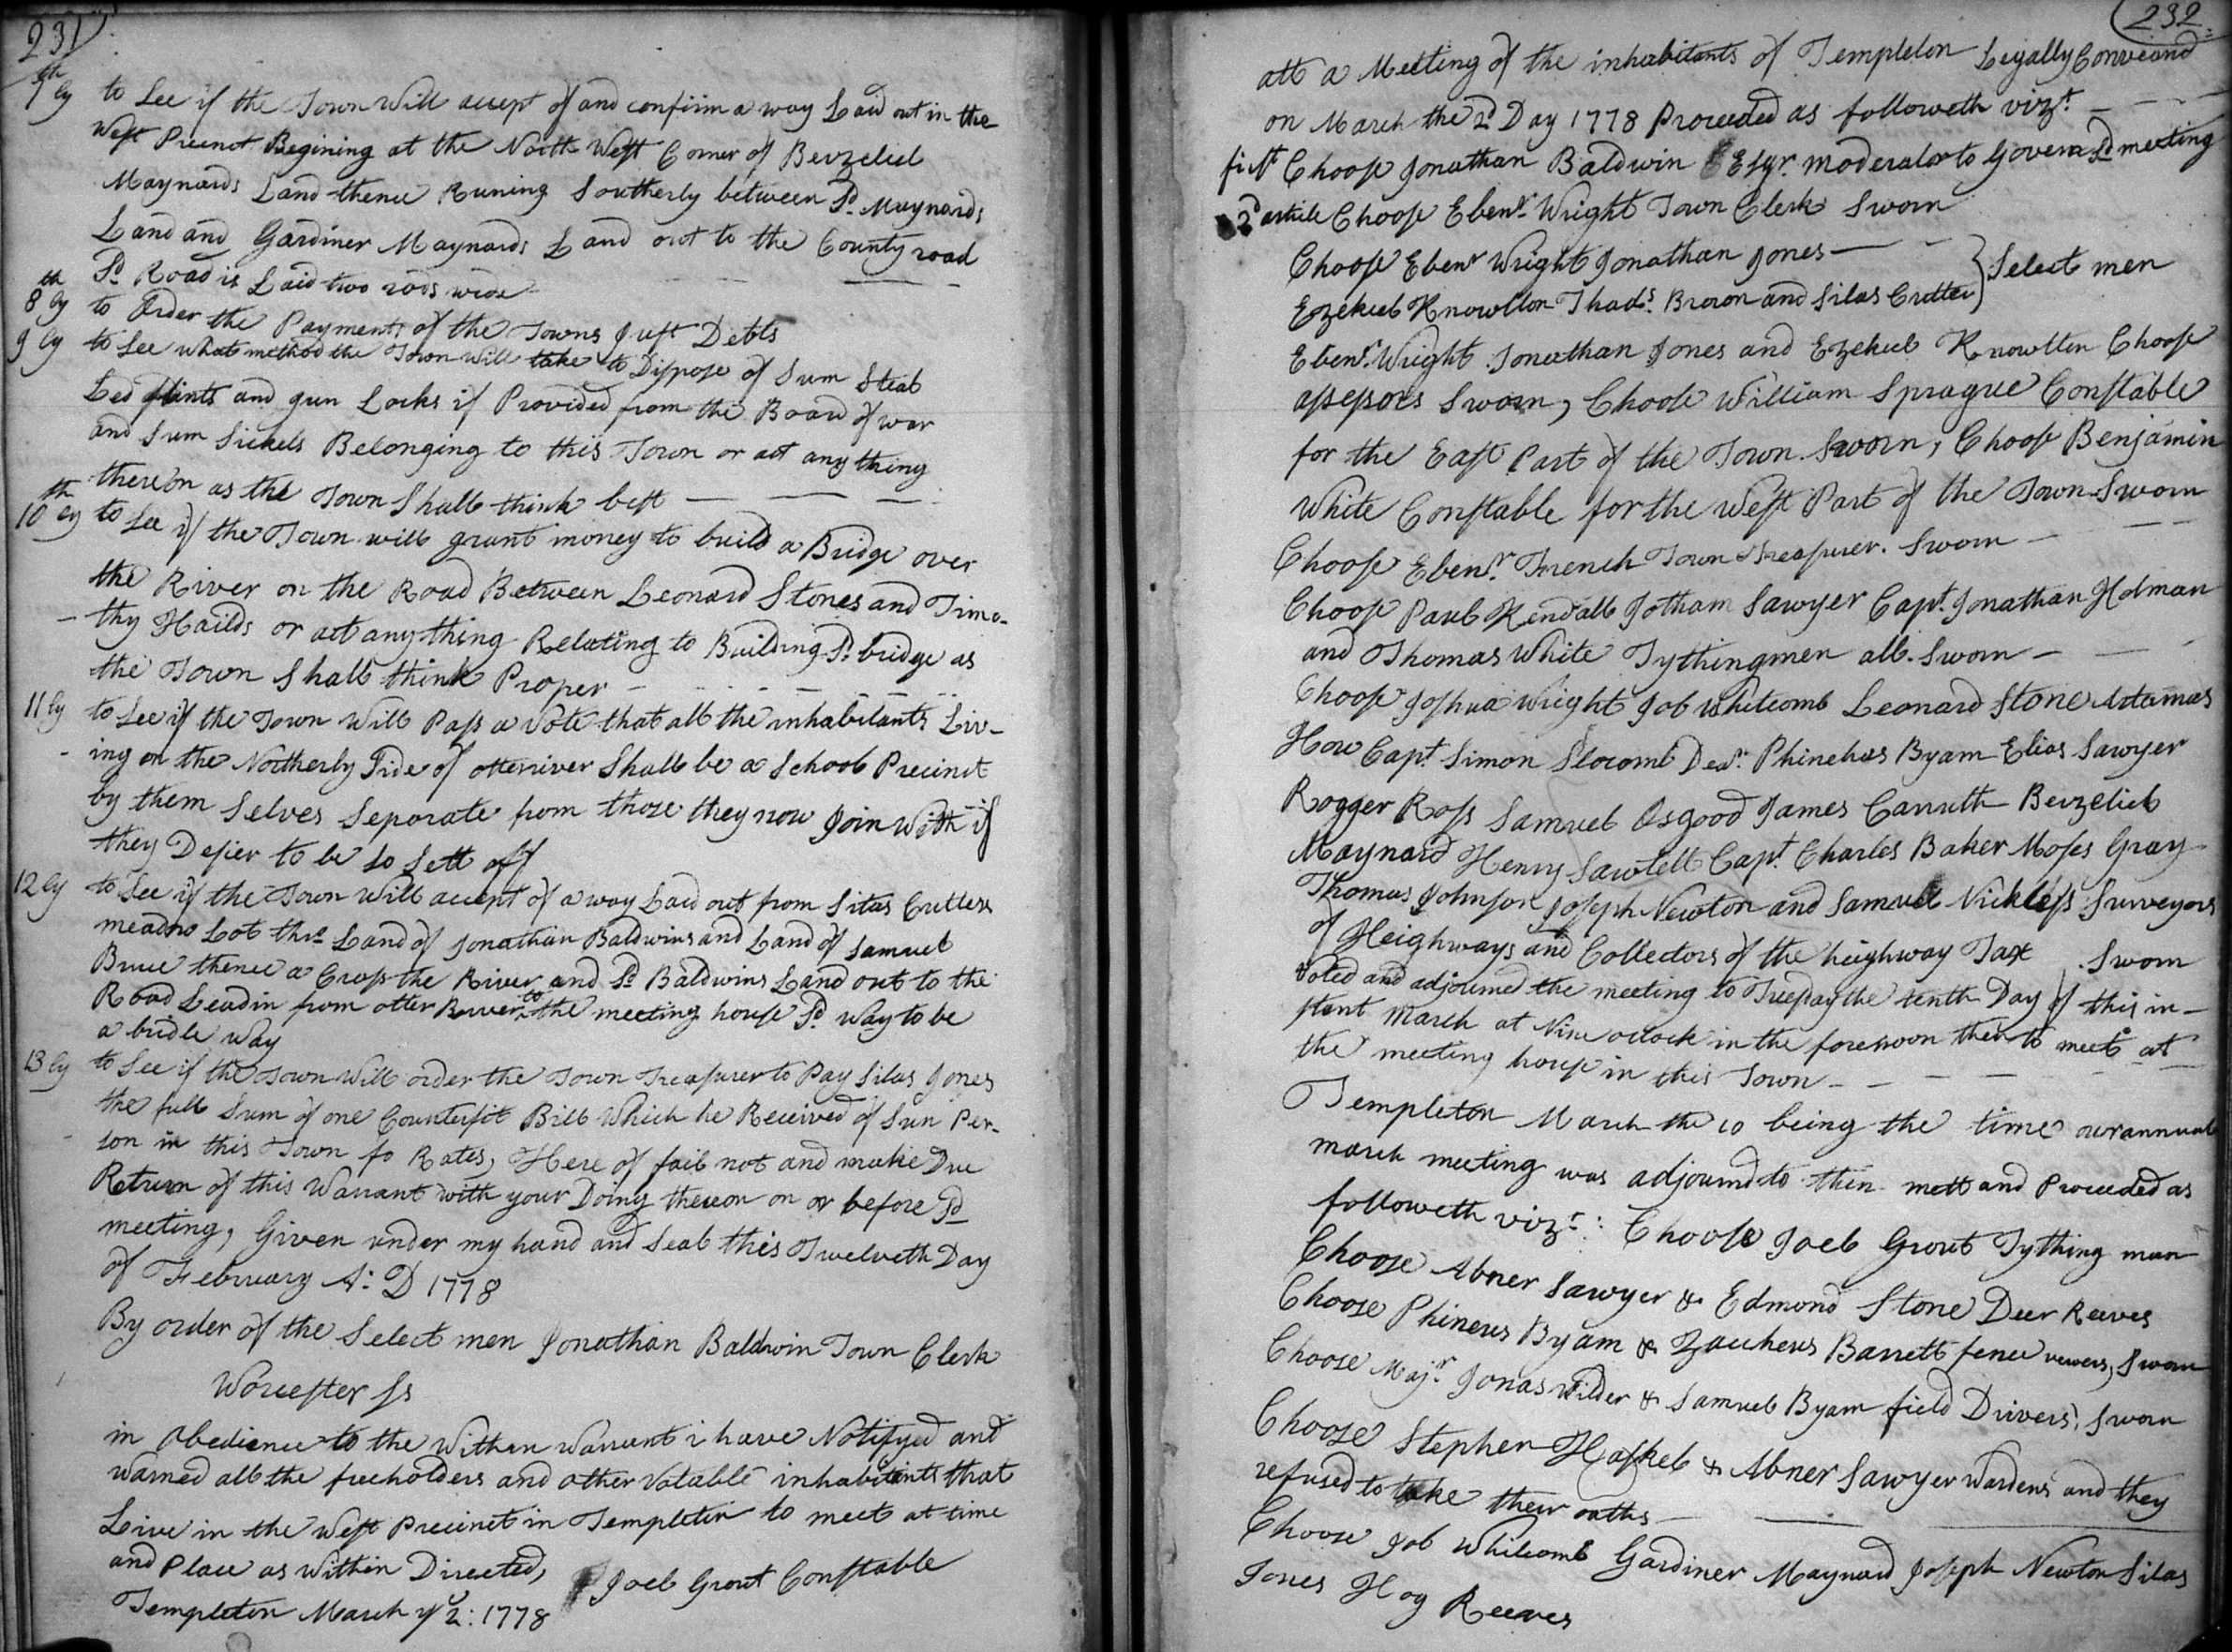 231
7thly to See if the Town Will accept of and confirm a way Laid out in the
West Precnct Begining at the North West Corner of Bezeliel
Maynards Land thence Runing Southerly between Sd. Maynards
Land and Gardiner Maynards Land out to the County road
Sd Road is Laid two rods wide
8thly to Order the Payments of the Towns Just Debts
9ly to See what method the Town Will take to Dispose of Sum Steal
Led flints and gun Locks if Provided from the Board of war
and Sum Sickels Belonging to this Town or act any thing
thereon as the Town Shall think best
10thly to See if the Town will grant money to build a Bridge over
the River on the Road Between Leonard Stones and Timo-
thy Hailds or act any thing Relating to Building Sd bridge as
the Town Shall think Proper
11ly to See if the Town Will Pass a Vote that all the inhabitants Liv-
ing on the Northerly Side of otteriver Shall be a School Precinct
by them Selves Seporate from those they now Join With if
they Desier to be So Sett off
12ly to See if the Town Will accept of a way Laid out from Silas Cutters
meadno Lot thro Land of Jonathan Baldwins and Land of Samuel
Bruce thence a Cross the River and Sd Baldwins Land out to the
Road Leadin from otter River to the meeting house Sd way to be
a bridle Way
13ly to See if the Town Will order the Town Treasurer to Pay Silas Jones
the full Sum of one Counterfit Bill Which he Received of Sun Per-
son in this Town fo Rates, Here of fail not and make Due
Return of this Warrant with your Doing thereon on or before Sd
meeting, Given under my hand and Seal this Twelveth Day
of February A: D 1778
By order of the Select men Jonathan Baldwin Town Clerk
Worcester Ss
in Obedience to the Within Warrant i have Notifyed and
warned all the freeholders and other Votable inhabitants that
Live in the West Precinct in Templeton to meet at time
and Place as Within Directed,
Joel Grout Constable
Templeton March ye 2: 1778
232
att a Meeting of the inhabitants of Templeton Legally Conveand
on March the 2d Day 1778 Proceeded as followeth vizt.
first Choose Jonathan Baldwin Esqr. moderator to Govern Sd meeting
2d article Choose Ebenr. Wright Town Clerk Sworn
Choose Ebenr Wright Jonathan Jones
Ezekiel Knowlton Thads. Brown and Silas Cutter } Select men
Ebenr. Wright Jonathan Jones and Ezekiel Knowlton Choose
assessors Sworn, Choose William Sprague Constable
for the East Part of the Town Sworn, Choose Benjamin
White Constable for the West Part of the Town Sworn
Choose Ebenr. French Town Treasurer. Sworn
Choose Paul Kendall Jotham Sawyer Capt. Jonathan Holman
and Thomas White Tythingmen all. Sworn
Choose Joshua Wright Job Whitcomb Leonard Stone Artamas
How Capt. Simon Slocomb Dean. Phinehas Byam Elias Sawyer
Rogger Ross Samuel Osgood James Carruth Bezeliel
Maynard Henry Sawtell Capt. Charles Baker Moses Gray
Thomas Johnson Joseph Newton and Samuel Nickless Surveyors
of Heighways and Collectors of the heighway Tax Sworn
Voted and adjourned the meeting to Tuesday the tenth Day of this in-
stant March at Nine oclock in the forenoon then to meet at
the meeting house in this Town
Templeton March the 10 being the time our annual
march meeting was adjournd to then mett and Proceeded as
followeth vizt: Choose Joel Grout Tything man
Choose Abner Sawyer & Edmond Stone Deer Reeves
Choose Phineus Byam & Zaccheus Barrett fence vewers, Sworn
Choose Majr. Jonas Wilder & Samuel Byam field Drivers, Sworn
Choose Stephen Haskel & Abner Sawyer Wardens and they
refused to take their oaths
Choose Job Whitcomb Gardiner Maynard Joseph Newton Silas
Jones Hog Reeves